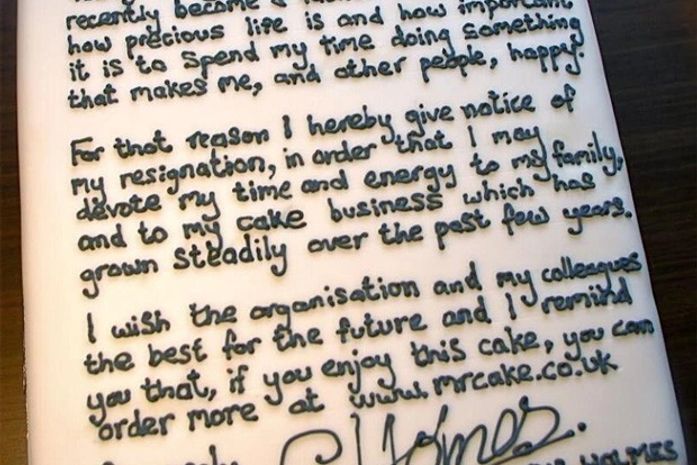 recently become a
how precious life is and how important
it is to spend my time doing something
that makes me, and other people, happy.
For that reason I hereby give notice of
my resignation, in order that I may
devote my time and energy to my family,
and to my cake business which has
grown steadily over the past few years.
I wish the organisation and my colleagues
the best for the future and I remind
you that, if you enjoy this cake, you can
order more at www.mrcake.co.uk
HOLMES